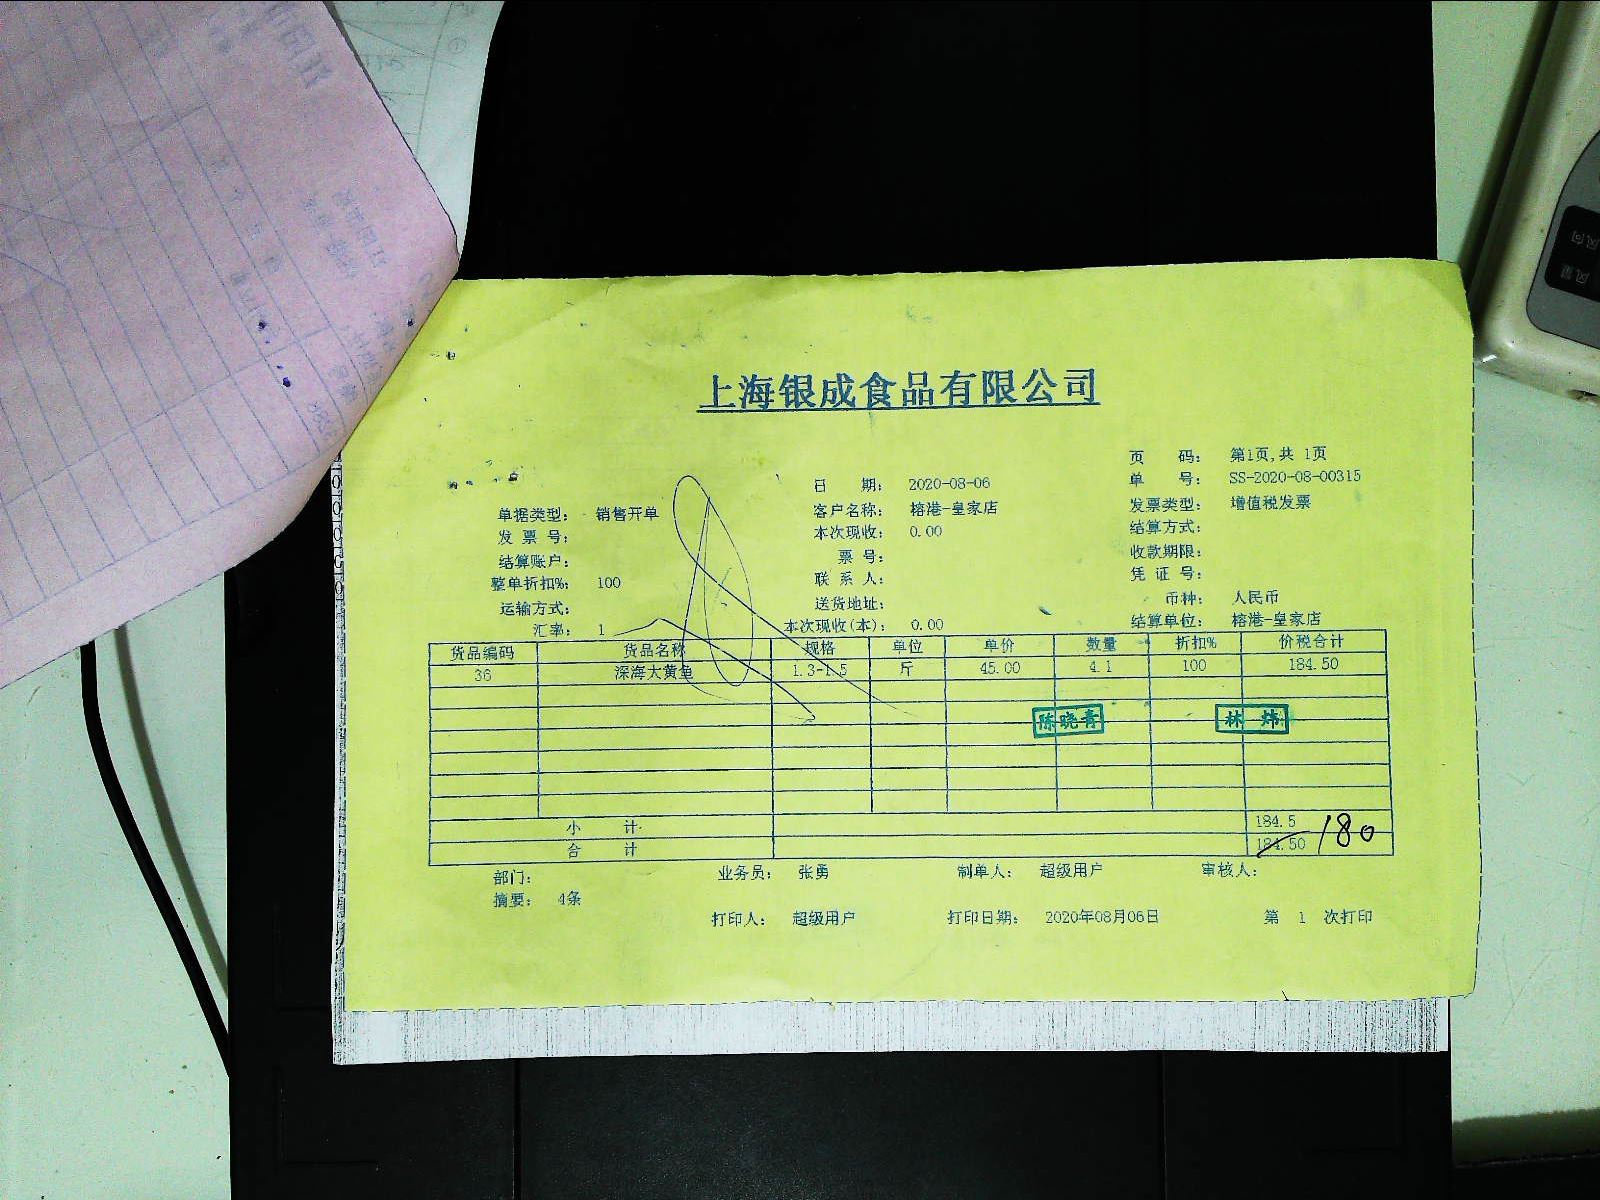 上海银成食品有限公司
页 码： 第1页,共 1页
日 期： 2020-08-06 单 号： SS-2020-08-00315
单据类型： 销售开单 客户名称： 榕港-皇家店 发票类型： 增值税发票
发 票 号： 本次现收： 0.00 结算方式：
结算账户： 票 号： 收款期限：
整单折扣%： 100 联 系 人： 凭 证 号：
运输方式： 送货地址： 币种： 人民币
汇率： 1 本次现收(本)： 0.00 结算单位： 榕港-皇家店
货品编码 货品名称 规格 单位 单价 数量 折扣% 价税合计
36 深海大黄鱼 1.3-1.5 斤 45.00 4.1 100 184.50
陈晓青 林 炜
小 计 184.5
合 计 184.50 180
部门： 业务员： 张勇 制单人： 超级用户 审核人：
摘要： 4条
打印人： 超级用户 打印日期： 2020年08月06日 第 1 次打印